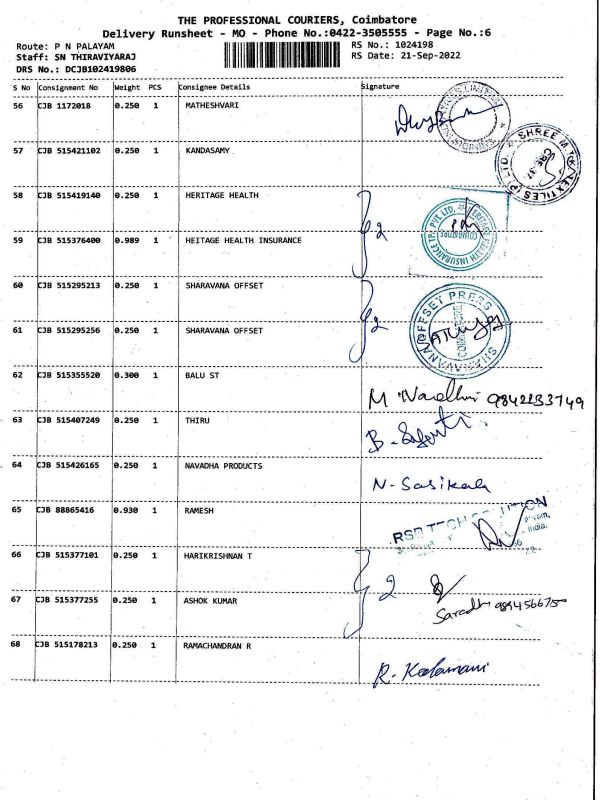 THE PROFESSIONAL COURIERS, Coimbatore
Delivery Runsheet - MO - Phone No.:0422-3505555 - Page No.:6
Route: P N PALAYAM RS No.: 1024198
Staff: SN THIRAVIYARAJ RS Date: 21-Sep-2022
DRS No.: DCJB102419806
S No Consignment No Weight PCS Consignee Details Signature
56 CJB 1172018 0.250 1 MATHESHVARI
57 CJB 515421102 0.250 1 KANDASAMY
SHREE
TEXTILES (P) LTD
58 CJB 515419140 0.250 1 HERITAGE HEALTH
59 CJB 515376400 0.989 1 HEITAGE HEALTH INSURANCE
2
HERITAGE HEALTH INSURANCE TPA PVT. LTD.
COIMBATORE
60 CJB 515295213 0.250 1 SHARAVANA OFFSET
61 CJB 515295256 0.250 1 SHARAVANA OFFSET
2
SHARAVANA OFFSET PRESS
62 CJB 515355520 0.300 1 BALU ST
M
63 CJB 515407249 0.250 1 THIRU
B.
64 CJB 515426165 0.250 1 NAVADHA PRODUCTS
N. Sasikala
65 CJB 88865416 0.930 1 RAMESH
RSB TECH
India.
66 CJB 515377101 0.250 1 HARIKRISHNAN T
2
67 CJB 515377255 0.250 1 ASHOK KUMAR
68 CJB 515178213 0.250 1 RAMACHANDRAN R
R. Kalamani